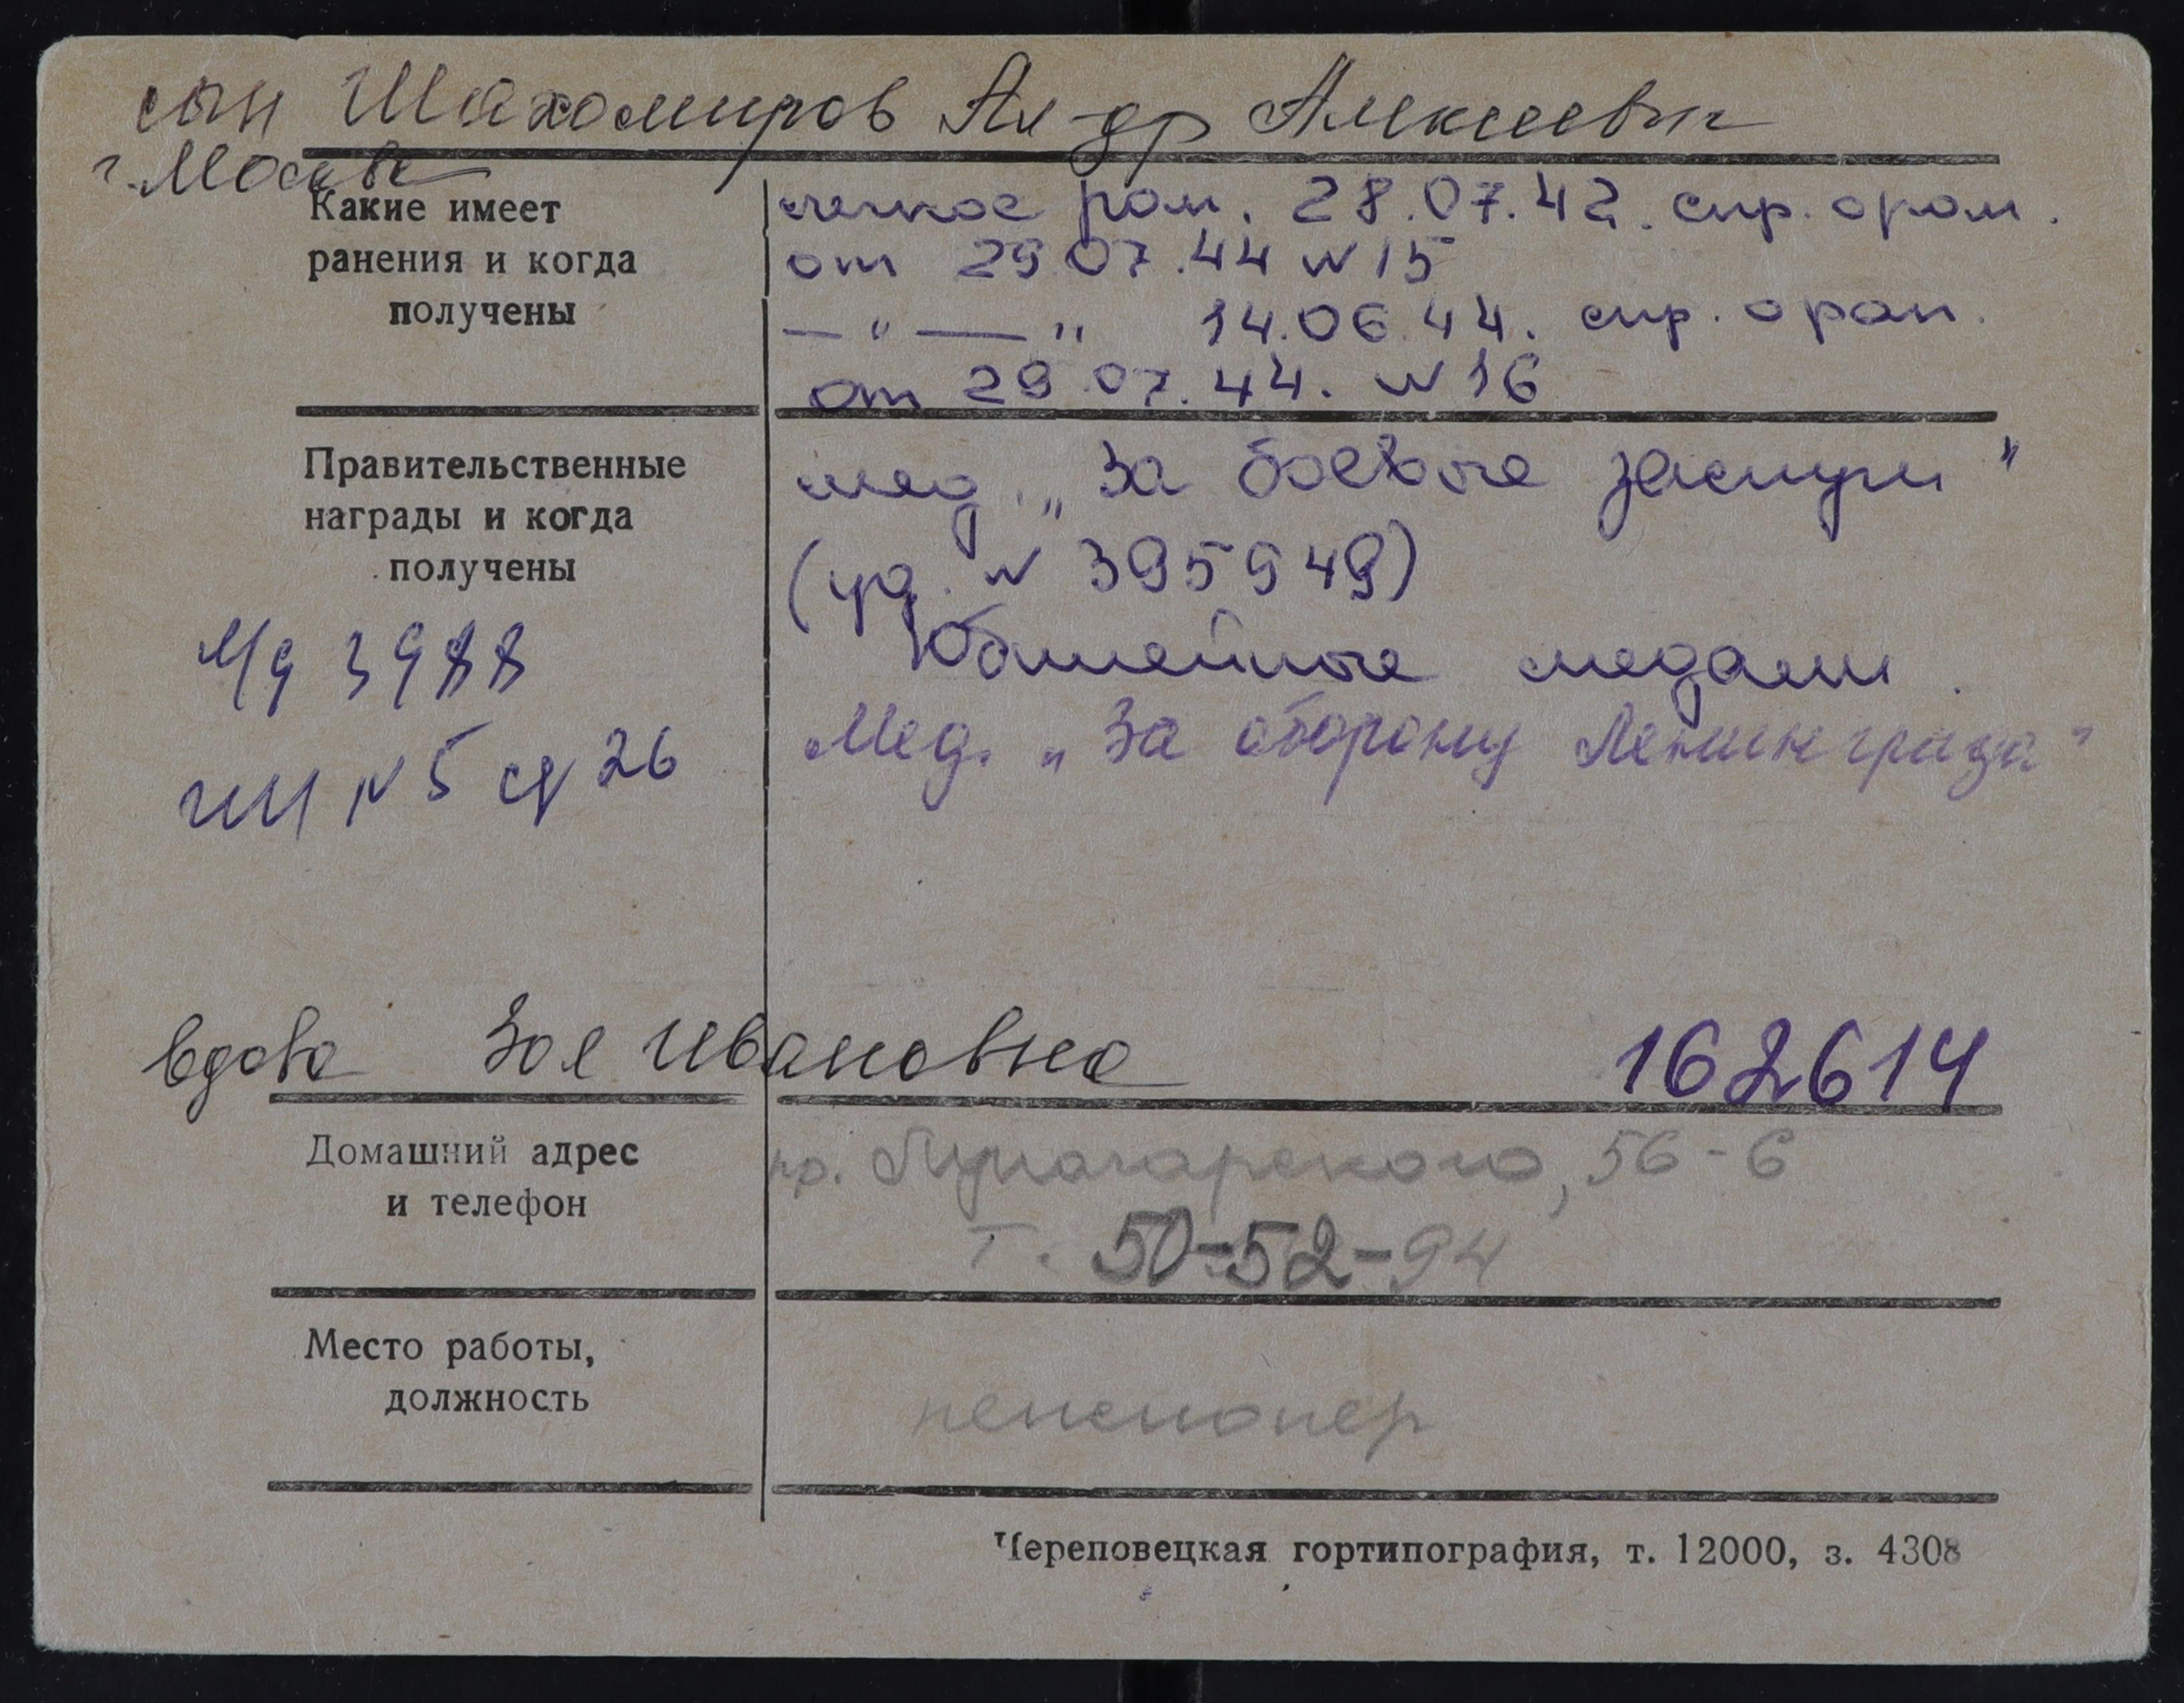 сын Шахомиров Ал-др Алексеевич
г. Москва
Какие имеет
ранения и когда
получены
легкое ран. 28.07.42. спр. о ран.
от 29.07.44 N 15
— " — " 14.06.44. спр. о ран.
от 29.07.44. N 16
Правительственные
награды и когда
получены
мед. „За боевые заслуги"
(уд. N 395949)
Юбилейные медали.
Мед. „За оборону Ленинграда"
М/д 3988
N 5 26
вдова Зоя Ивановна
162614
Домашний адрес
и телефон
пр. Луначарского, 56-6
т. 50-52-94
Место работы,
должность
пенсионер
Череповецкая гортипография, т. 12000, з. 4308